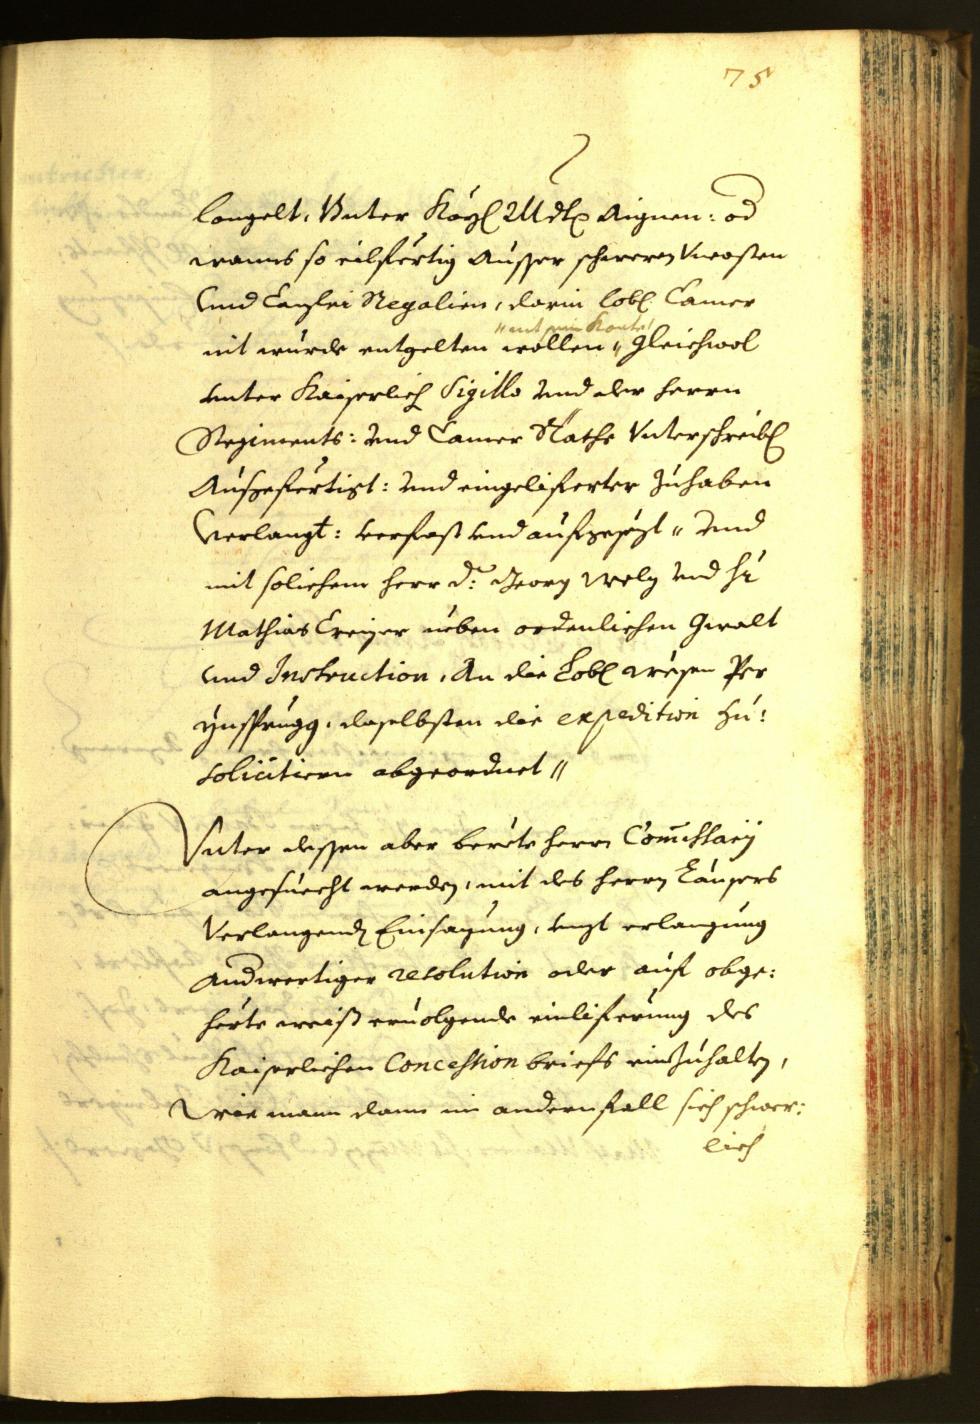 75
langelt, Vnter Kayl Mdt Aignen: od
wanns so eilfertig Ausser schweren Vncosten
vnd Canzlei Regalien, darin lobl. Camer
nit würde entgelten wollen " Gleichwol
vnter Kaiserlich Sigillo vnd der herrn
Regiments: vnd Camer Räthe Vnterschreib
Ausgefertigt: vnd eingelifferter Zuhaben
Verlangt: verfast vnd aufgesezt " vnd
mit solichem herr D: Georg Welz vnd hr
Mathias Creizer neben ordenlichen Gwalt
vnd Instruction, An die Lobl wesen Per
ynsprugg, daselbsten die expedition zu:
solicitiern abgeordnet "
Vnter dessen aber berürte herrn Commissary
angesuecht werden, mit des herrn Läupers
Verlangend Einsazung, vnzt erlangung
andwertiger resolution oder auf obge:
hörte weiß ervolgende einliferung des
Kaiserlichen Concession briefs einzuhalten,
Wie mann dann im andern fall sich schwer:
lich